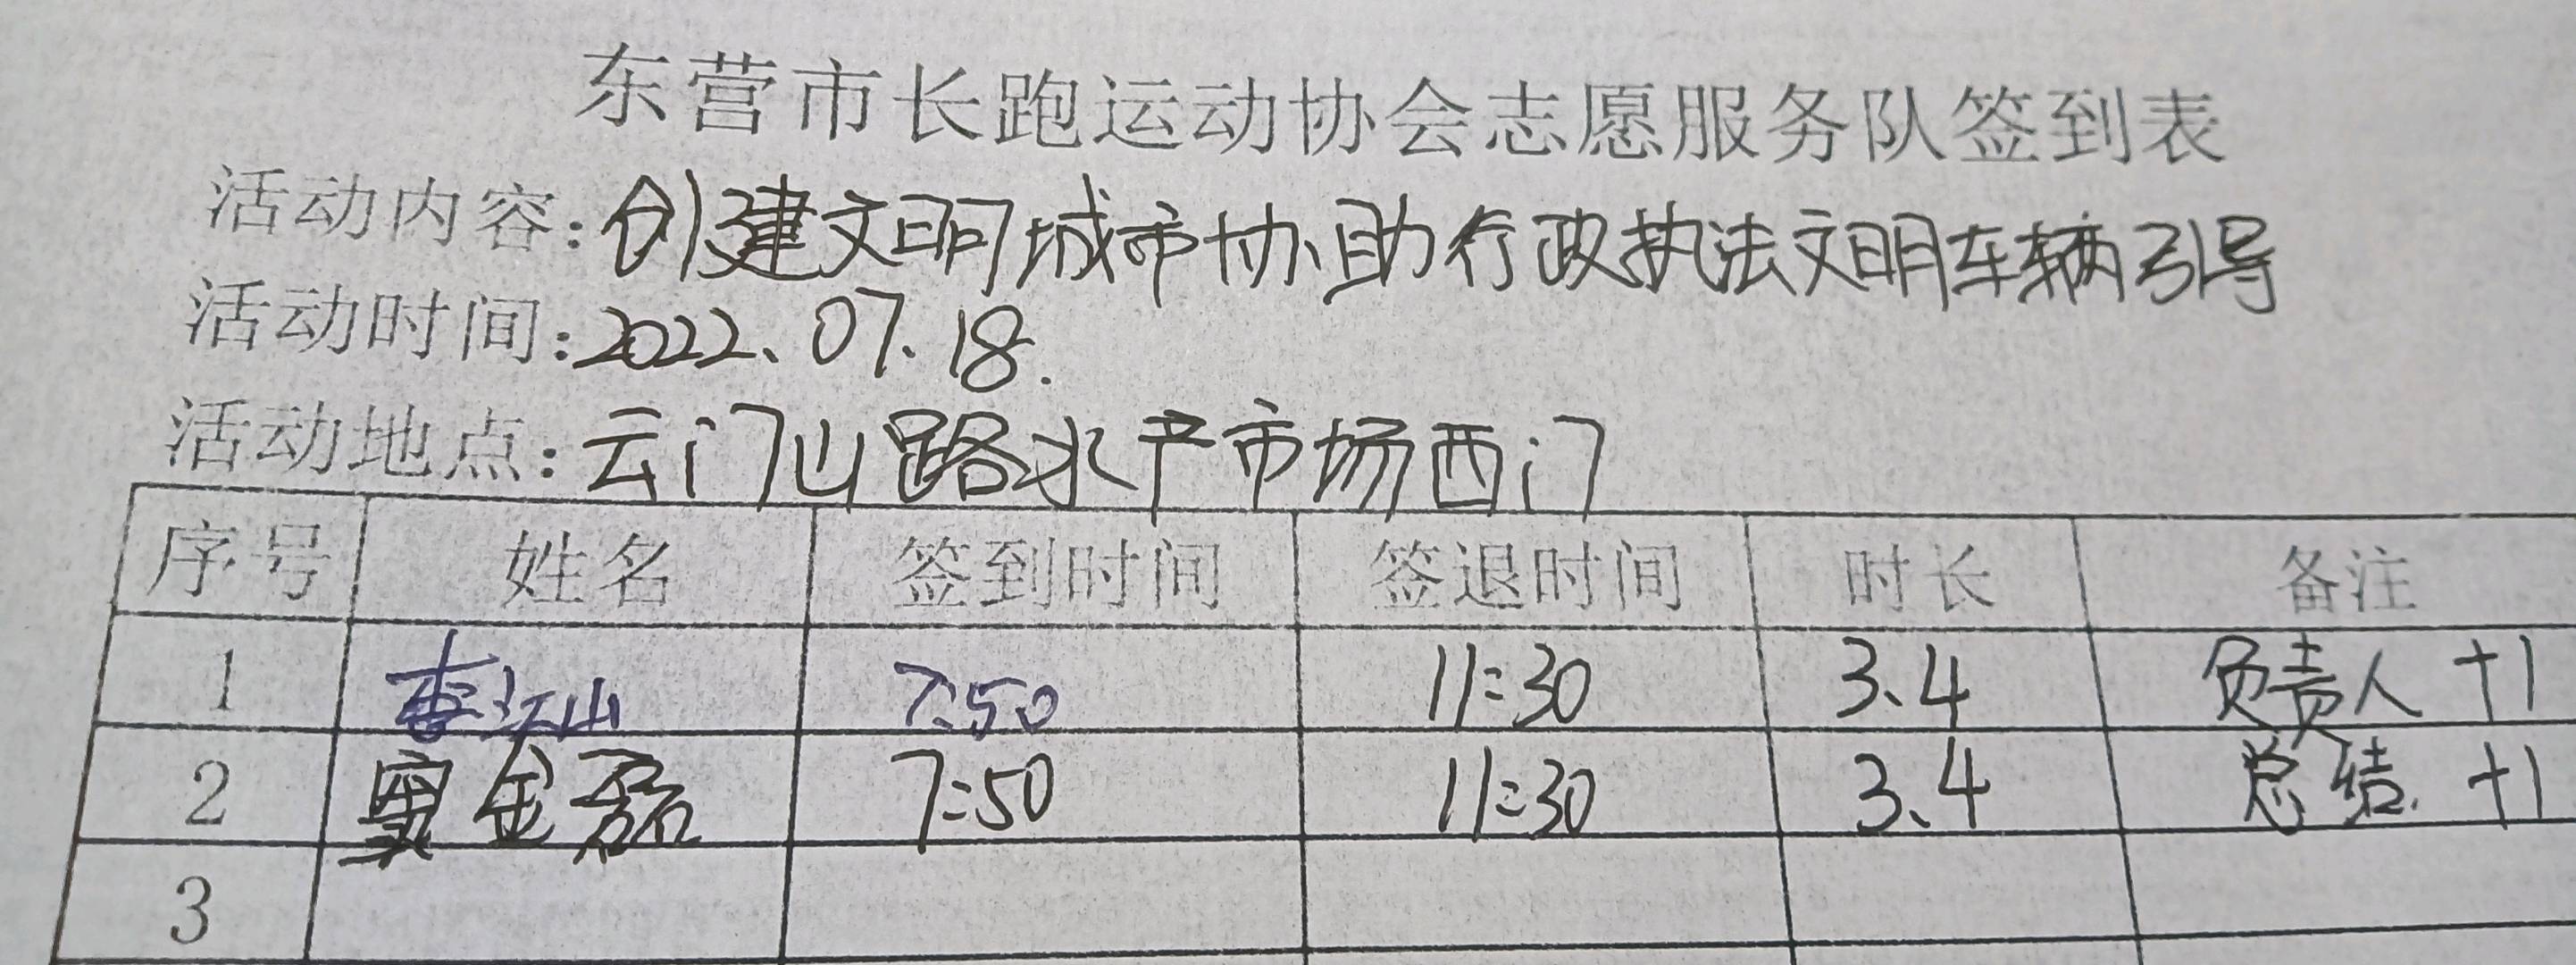 东营市长跑运动协会志愿服务队签到表
活动内容:创建文明城市协助行政执法文明车辆引导
活动时间:2022.07.18.
活动地点:云门山路水产市场西门
序号 姓名 签到时间 签退时间 时长 备注
1 李江山 7:50 11:30 3.4 负责人 +1
2 金磊 7:50 11:30 3.4 总结. +1
3